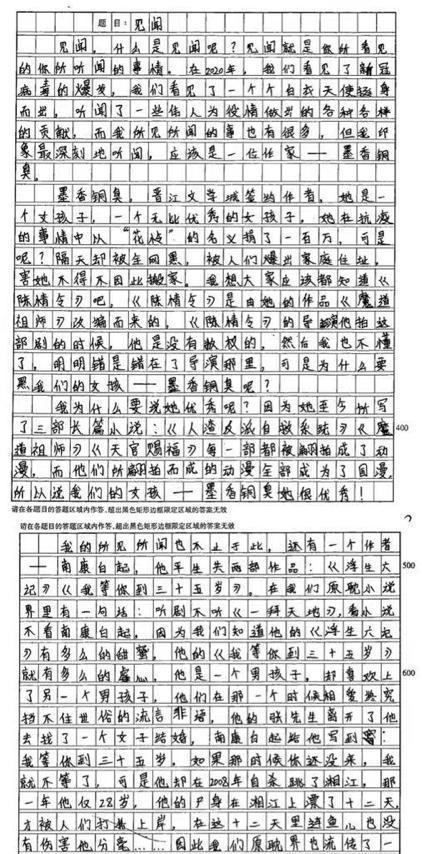 题目:见闻
见闻,什么是见闻呢?见闻就是你所看见
的你所听闻的事情。在2020年,我们看见了新冠
病毒的爆发,我们看见了一个个白衣天使挺身
而出,听闻了一些伟人为疫情做出的各种各样
的贡献,而我所见所闻的事也有很多,但我印
象最深刻地听闻,应该是一位作家——墨香铜
臭。
墨香铜臭,晋江文学城签约作者。她是一
个女孩子,一个无比优秀的女孩子,她在抗疫
的事情中以“花怜”的名义捐了一百万,可是
呢?隔天却被全网黑,被人们爆出家庭住址,
害她不得不因此搬家。我想大家应该都知道《
陈情令》吧,《陈情令》是由她的作品《魔道
祖师》改编而来的,《陈情令》的导演他拍这
部剧的时候,他是没有版权的,然后我也不懂
了,明明错是错在了导演那里,可是为什么要
黑我们的女孩——墨香铜臭呢?
我为什么要说她优秀呢?因为她至今所写
了三部长篇小说:《人渣反派自救系统》《魔
400
道祖师》《天官赐福》每一部都被翻拍成了动
漫,而他们所翻拍而成的动漫全部成为了国漫,
所以说我们的女孩——墨香铜臭她很优秀!
请在各题目的答题区域内作答,超出黑色矩形边框限定区域的答案无效
请在各题目的答题区域内作答,超出黑色矩形边框限定区域的答案无效
我的所见所闻也不止于此,还有一个作者
——南康白起,他平生共两部作品:《浮生六
500
记》《我等你到三十五岁》。在我们原耽小说
界里有一句话:听剧不听《一拜天地》,看小说
不看南康白起,因为我们知道他的《浮生六记
》有多么的甜蜜,他的《我等你到三十五岁》
就有多么的虐心,他是个男孩子,却喜欢上
600
了另一个男孩子,他们在那一个时候相爱终究
挡不住世俗的流言菲语,他的朕先生离开了他
去找了一个女子结婚,南康白起给他写到
我等你到三十五岁,如果那时候你还没来,我
就不等了,可是他却在2008年自杀跳了湘江,那
一年他仅28岁,他的尸身在湘江上漂了十二天,
才被人们打捞上岸,在这十二天里连鱼儿也没
有伤害他分毫……因此我们原耽界也流传了一